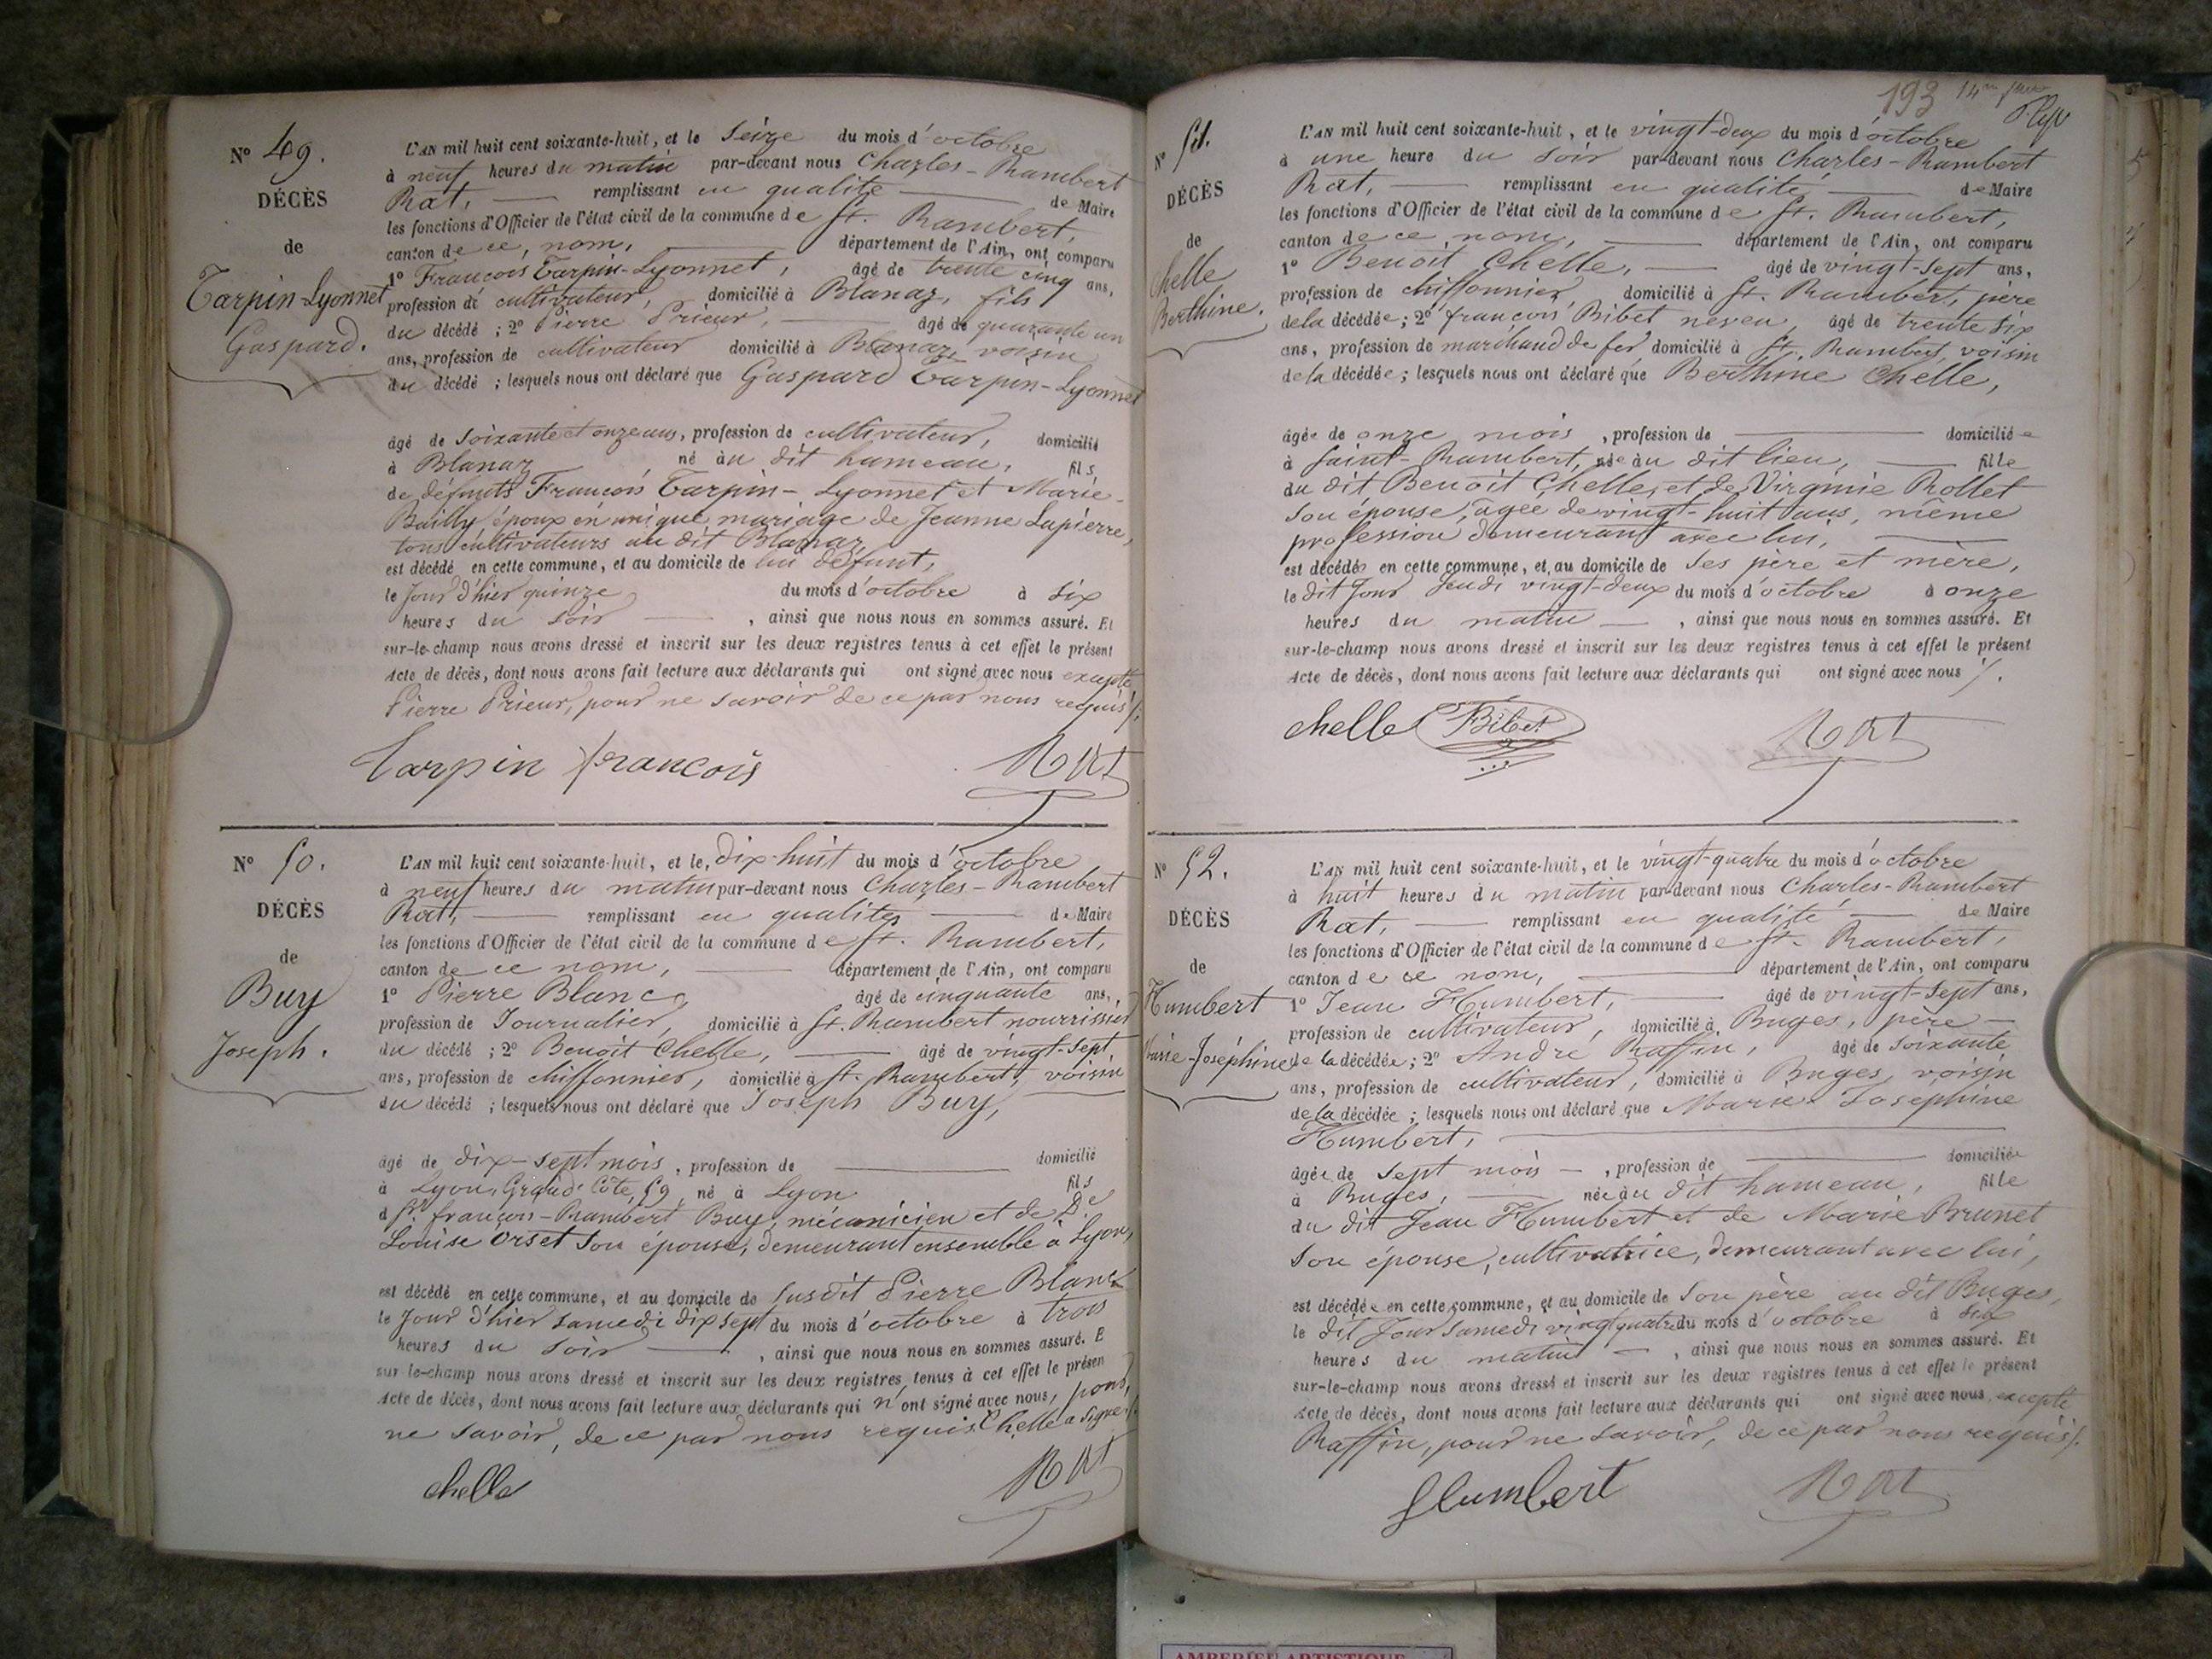 N° 49.
DÉCÈS
de
Tarpin-Lyonnet
Gaspard.
L'AN mil huit cent soixante-huit, et le Seize du mois d'octobre
à neuf heures du matin par-devant nous Charles-Rambert
Rat, remplissant en qualité de Maire
les fonctions d'Officier de l'état civil de la commune de St. Rambert,
canton de ce, nom, département de l'Ain, ont comparu
1° François Tarpin-Lyonnet, âgé de trente cinq ans,
profession de cultivateur, domicilié à Blanaz, fils
du décédé ; 2° Pierre Prieur, âgé de quarante un
ans, profession de cultivateur domicilié à Blanaz voisin
du décédé ; lesquels nous ont déclaré que Gaspard Tarpin-Lyonnet
âgé de soixante et onze ans, profession de cultivateur, domicilié
à Blanaz né au dit hameau, fils
de défunts François Tarpin-Lyonnet et Marie
Bailly époux en unique mariage de Jeanne Lapierre,
tous cultivateurs au dit Blanaz,
est décédé en cette commune, et au domicile de du défunt,
le Jour d'hier quinze du mois d'octobre à six
heures du soir, ainsi que nous nous en sommes assuré. Et
sur-le-champ nous avons dressé et inscrit sur les deux registres tenus à cet effet le présent
Acte de décès, dont nous avons fait lecture aux déclarants qui ont signé avec nous excepté
Pierre Prieur, pour ne savoir de ce par nous requis/.
Tarpin françois Rat
N° 50.
DÉCÈS
de
Buy
Joseph.
L'AN mil huit cent soixante-huit, et le, dix-huit du mois d'octobre
à neuf heures du matin par-devant nous Charles-Rambert
Rat, remplissant en qualité, de Maire
les fonctions d'Officier de l'état civil de la commune de St. Rambert,
canton de ce nom, département de l'Ain, ont comparu
1° Pierre Blanc, âgé de cinquante ans,
profession de Journalier, domicilié à St. Rambert nourrissier
du décédé ; 2° Benoit Chelle, âgé de vingt-sept
ans, profession de chiffonnier, domicilié à St. Rambert, voisin
du décédé ; lesquels nous ont déclaré que Joseph Buy,
âgé de dix-sept mois, profession de domicilié
à Lyon, Grand' Côte, 59, né à Lyon fils
d Sr françois-Rambert Buy, mécanicien et de De
Louise Orset son épouse, demeurant ensemble à Lyon,
est décédé en cette commune, et au domicile de susdit Pierre Blanc
le Jour d'hier samedi dix sept du mois d'octobre à trois
heures du soir, ainsi que nous nous en sommes assuré. E
sur-le-champ nous avons dressé et inscrit sur les deux registres tenus à cet effet le présen
Acte de décès, dont nous avons fait lecture aux déclarants qui n'ont signé avec nous, pour
ne savoir, de ce par nous requis Chelle a signé/.
chelle Rat
193
N° 51.
DÉCÈS
de
Chelle
Berthine.
L'AN mil huit cent soixante-huit, et le vingt-deux du mois d'octobre
à une heure du soir par-devant nous Charles-Rambert
Rat, remplissant en qualité, de Maire
les fonctions d'Officier de l'état civil de la commune de St. Rambert,
canton de ce nom, département de l'Ain, ont comparu
1° Benoit Chelle, âgé de vingt-sept ans,
profession de chiffonnier, domicilié à St. Rambert, père
de la décédée ; 2° françois Bibet neveu, âgé de trente six
ans, profession de marchand de fer, domicilié à St. Rambert, voisin
de la décédée ; lesquels nous ont déclaré que Berthine Chelle,
âgée de onze mois, profession de domiciliée
à Saint-Rambert, née au dit lieu, fille
du dit Benoit Chelle, et de Virginie Rollet
son épouse, âgée de vingt-huit ans, même
profession demeurant avec lui,
est décédée en cette commune, et, au domicile de ses père et mère,
le dit Jour Jeudi vingt-deux du mois d'octobre à onze
heures du matin, ainsi que nous nous en sommes assuré. Et
sur-le-champ nous avons dressé et inscrit sur les deux registres tenus à cet effet le présent
Acte de décès, dont nous avons fait lecture aux déclarants qui ont signé avec nous/.
chelle Bibet Rat
N° 52.
DÉCÈS
de
Humbert
Marie-Joséphine
L'AN mil huit cent soixante-huit, et le vingt-quatre du mois d'octobre
à huit heures du matin par-devant nous Charles-Rambert
Rat, remplissant en qualité de Maire
les fonctions d'Officier de l'état civil de la commune de St. Rambert,
canton de ce nom, département de l'Ain, ont comparu
1° Jean Humbert, âgé de vingt-sept ans,
profession de cultivateur, domicilié à Buges, père
de la décédée ; 2° André Raffin, âgé de soixante
ans, profession de cultivateur, domicilié à Buges, voisin
de la décédée ; lesquels nous ont déclaré que Marie-Joséphine
Humbert,
âgée de sept mois, profession de domiciliée
à Buges, née au dit hameau, fille
du dit Jean Humbert et de Marie Brunet
son épouse, cultivatrice, demeurant avec lui,
est décédée en cette commune, et au domicile de son père au dit Buges,
le dit Jour samedi vingt quatre du mois d'octobre à six
heures du matin, ainsi que nous nous en sommes assuré. Et
sur-le-champ nous avons dressé et inscrit sur les deux registres tenus à cet effet le présent
Acte de décès, dont nous avons fait lecture aux déclarants qui ont signé avec nous, excepté
Raffin, pour ne savoir, de ce par nous requis/.
Humbert Rat
AMBERIEU ARTISTIQUE